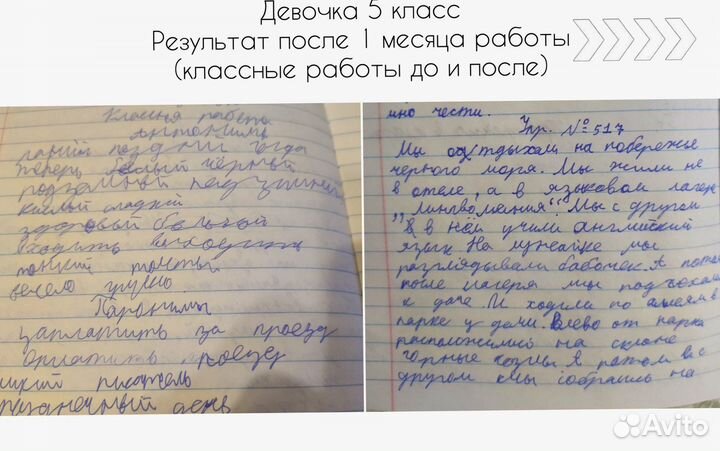 Девочка 5 класс
Результат после 1 месяца работы
(классные работы до и после)
Классная работа
Антонимы
поздний тогда
теперь белый чёрный
кислый сладкий
здоровый больной
входить выходить
тонкий толстый
весело грусно
Паронимы
заплатить за проезд
оплатить проезд
писатель
день
чести.
Упр. №517
Мы отдыхали на побережье
чёрного моря. Мы жили не
в отеле, а в языковом лагере
„Лингвомания". Мы с другом
в нём учили английский
язык На лужайке мы
разглядывали бабочек. А потом
после лагеря мы подъехали
к даче. И ходили по аллеям в
парке у дачи. Влево от парка
на склоне
горные козлы. А потом я с
другом мы собрались на
Avito